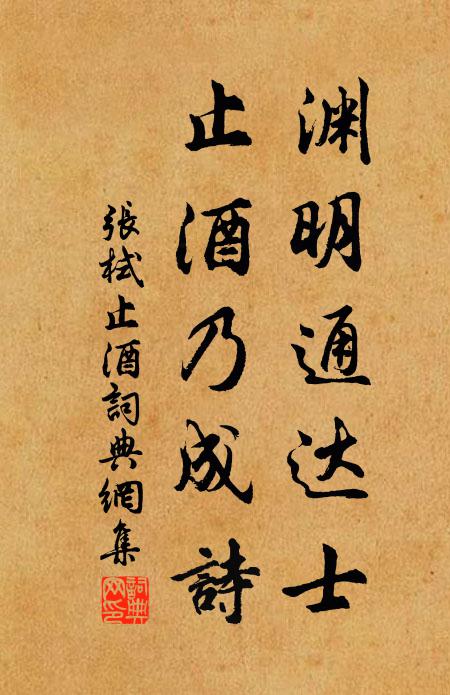 渊明通达士
止酒乃成詩
張栻止酒詞典網集
詞典网印